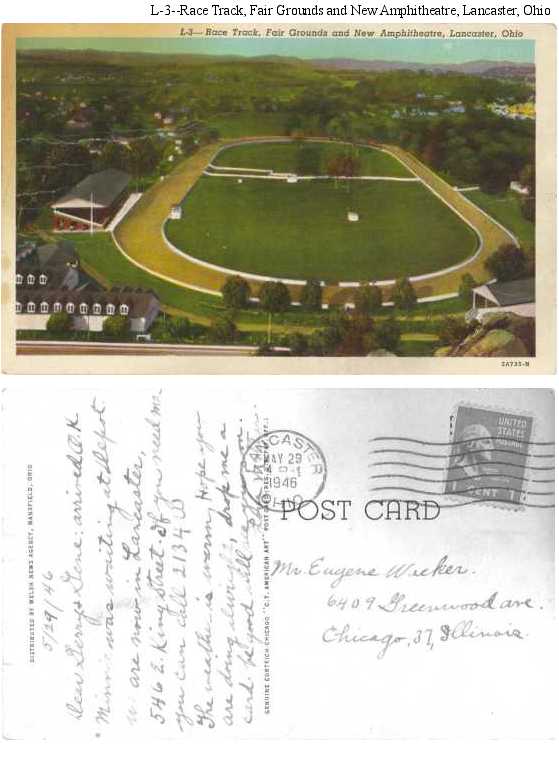 L-3--Race Track, Fair Grounds and New Amphitheatre, Lancaster, Ohio
L-3—Race Track, Fair Grounds and New Amphitheatre, Lancaster, Ohio
5A735-N
DISTRIBUTED BY WELSH NEWS AGENCY, MANSFIELD, OHIO
5/29/46
Dear Gene: arrived O.K
Minnie was waiting at Depot.
we are now in Lancaster,
546 E. King Street. If you need me
you can call 2134
The weather is warm. Hope you
are doing alwright, drop me a
card. be good will
GENUINE CURTEICH-CHICAGO "C.T. AMERICAN ART" POST
LANCASTER
MAY 29
1946
OHIO
UNITED
STATES
POSTAGE
1 CENT 1
POST CARD
Mr. Eugene Wicker.
6409 Greenwood ave.
Chicago, 37, Illinois.